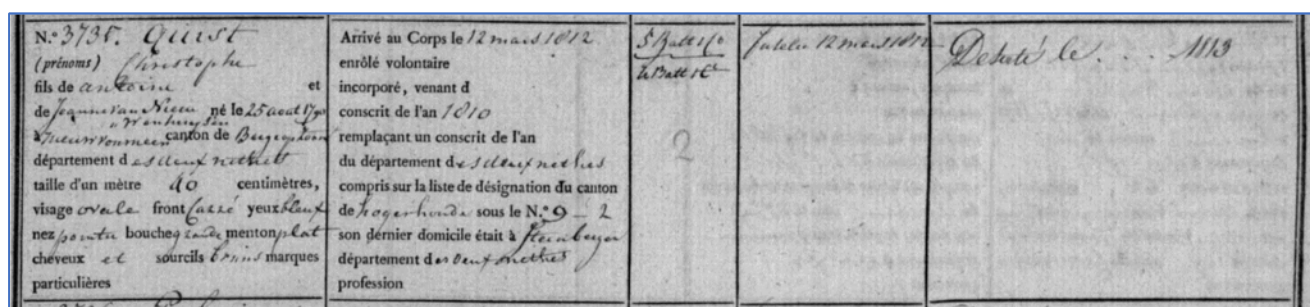 N.° 3735. Quist
(prénoms) Christophe
fils de antoine et
de Jeanne van né le 25 aout 1790
à canton de
département des deux nethes
taille d'un mètre 40 centimètres,
visage ovale front yeux bleux
nez pointu bouche grande menton plat
cheveux et sourcils bruns marques
particulières
Arrivé au Corps le 12 mars 1812
enrôlé volontaire
incorporé, venant d
conscrit de l'an 1810
remplaçant un conscrit de l'an
du département des deux nethes
compris sur la liste de désignation du canton
de sous le N.° 9 - 2
son dernier domicile était à
département des deux nethes
profession
5 Batt
4 Batt
2
12 mars 1812
le 1113